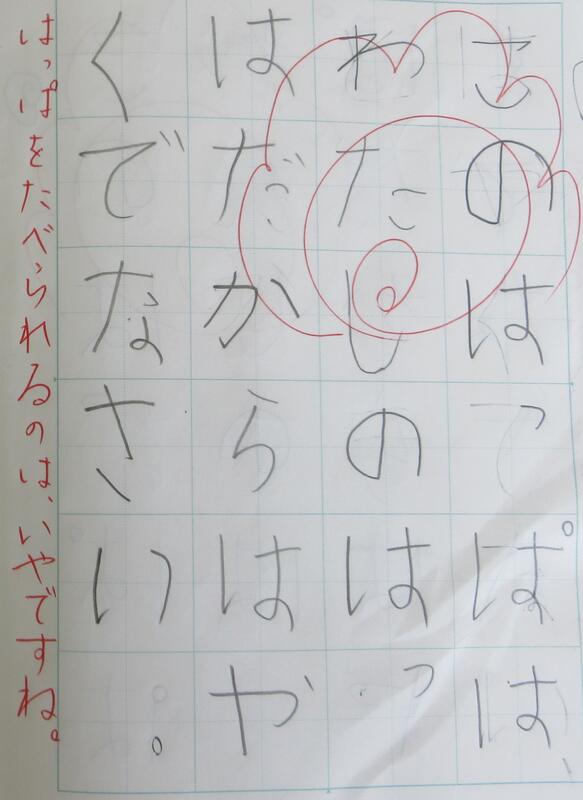 このはっぱは、
わたしのはっ
はだからはや
くでなさい。
はっぱをたべられるのは、いやですね。